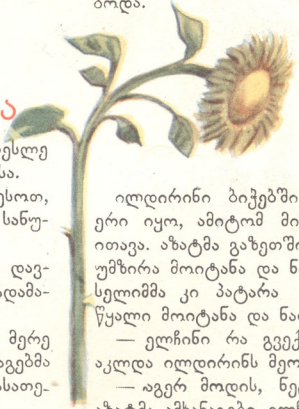 ბოდა.
ა
ესლე
სა.
ესოთ,
სანუ-
დავ-
ადამა-
მერე
აგებმა
სათე-
ილდირინი ბიჭებში
ერი იყო, ამიტომ მი
ითავა. აზატმა გაზეთში
უმზირა მოიტანა და ნა
სელიმმა კი პატარა
წყალი მოიტანა და ნაი
— ელჩინი რა გვექ
აკლდა ილდირინს მეო
— აგერ მოდის, ნე